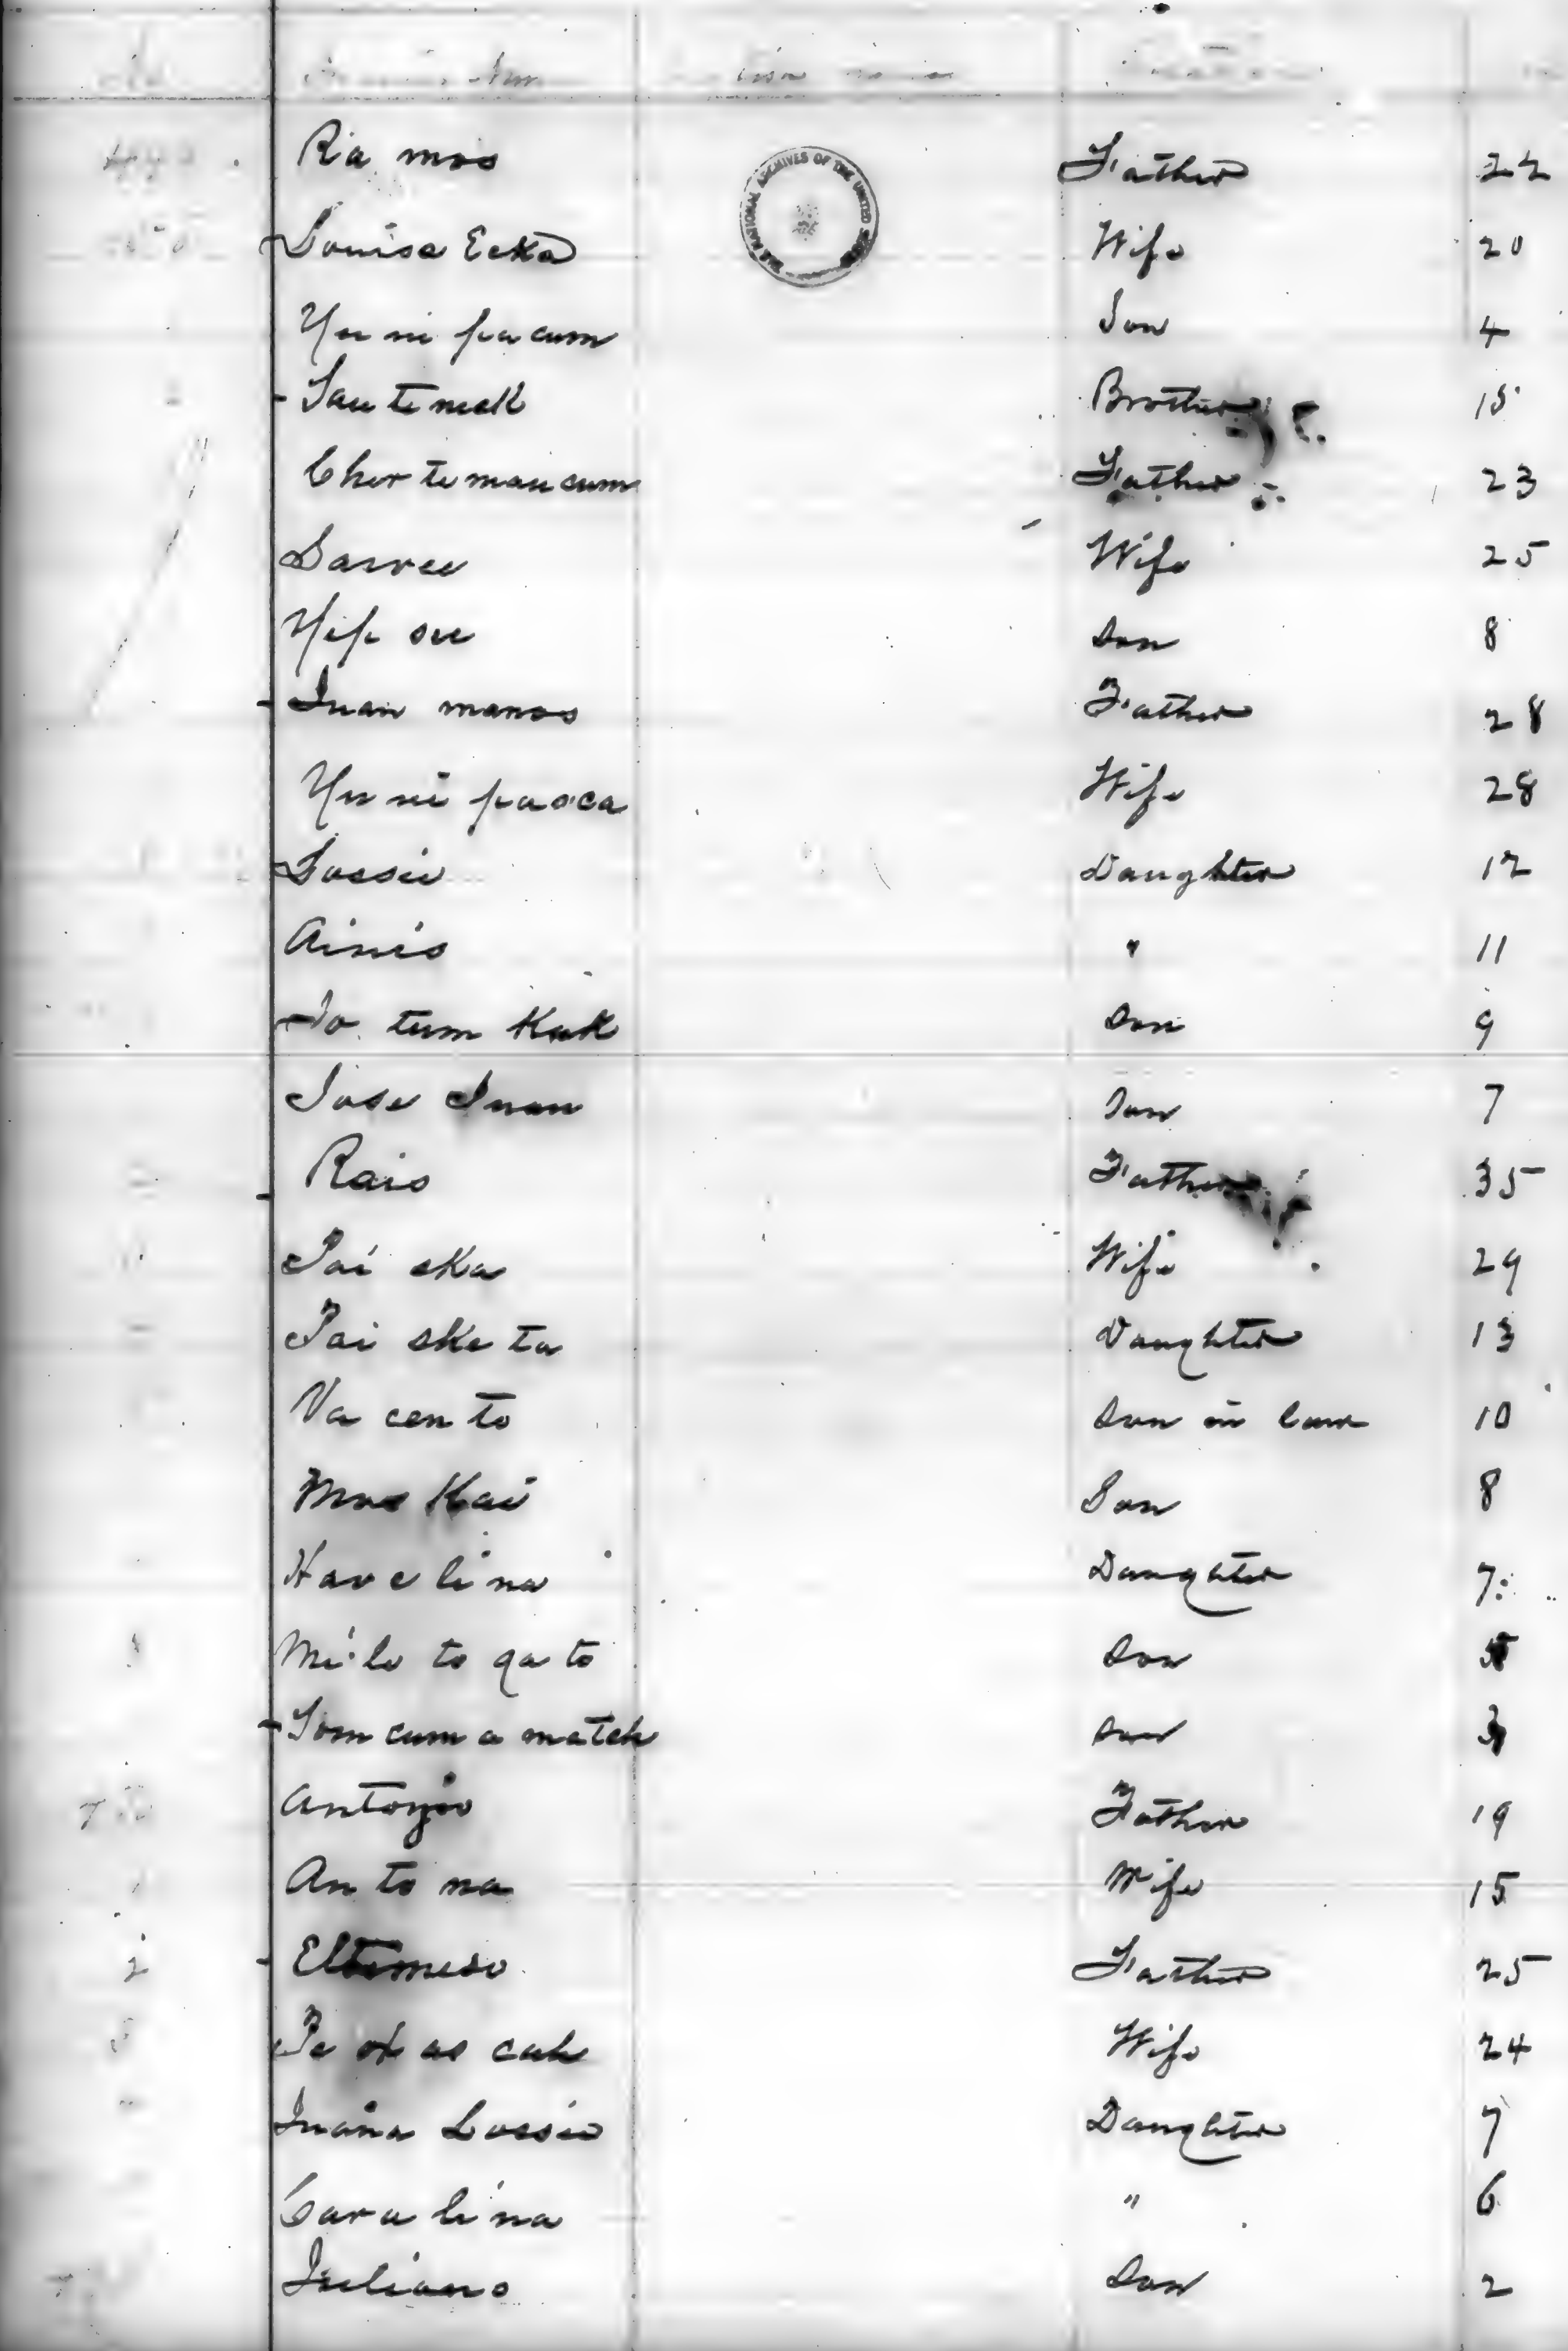 THE NATIONAL ARCHIVES OF THE UNITED STATES
Ra mos Father 22
Louisa Ecka Wife 20
Yu ni pa cum Son 4
Sau te mak Brother 15
Cher te mau cum Father 23
Sarvee Wife 25
Yep see Son 8
Juan manos Father 28
Yu ni pa o ca Wife 28
Lossie Daughter 12
Ainis " 11
So tum Kuk Son 9
Jose Juan Son 7
Rais Father 35
Pai ska Wife 29
Pai ske ta Daughter 13
Va cen to Son in law 10
Mos Kai Son 8
Hav e li na Daughter 7
Mi le to ga to Son 5
Tom cum a match Son 3
Antonio Father 19
An to na Wife 15
Father 25
Wife 24
Juana Lossie Daughter 7
Cara li na " 6
Juliano Son 2